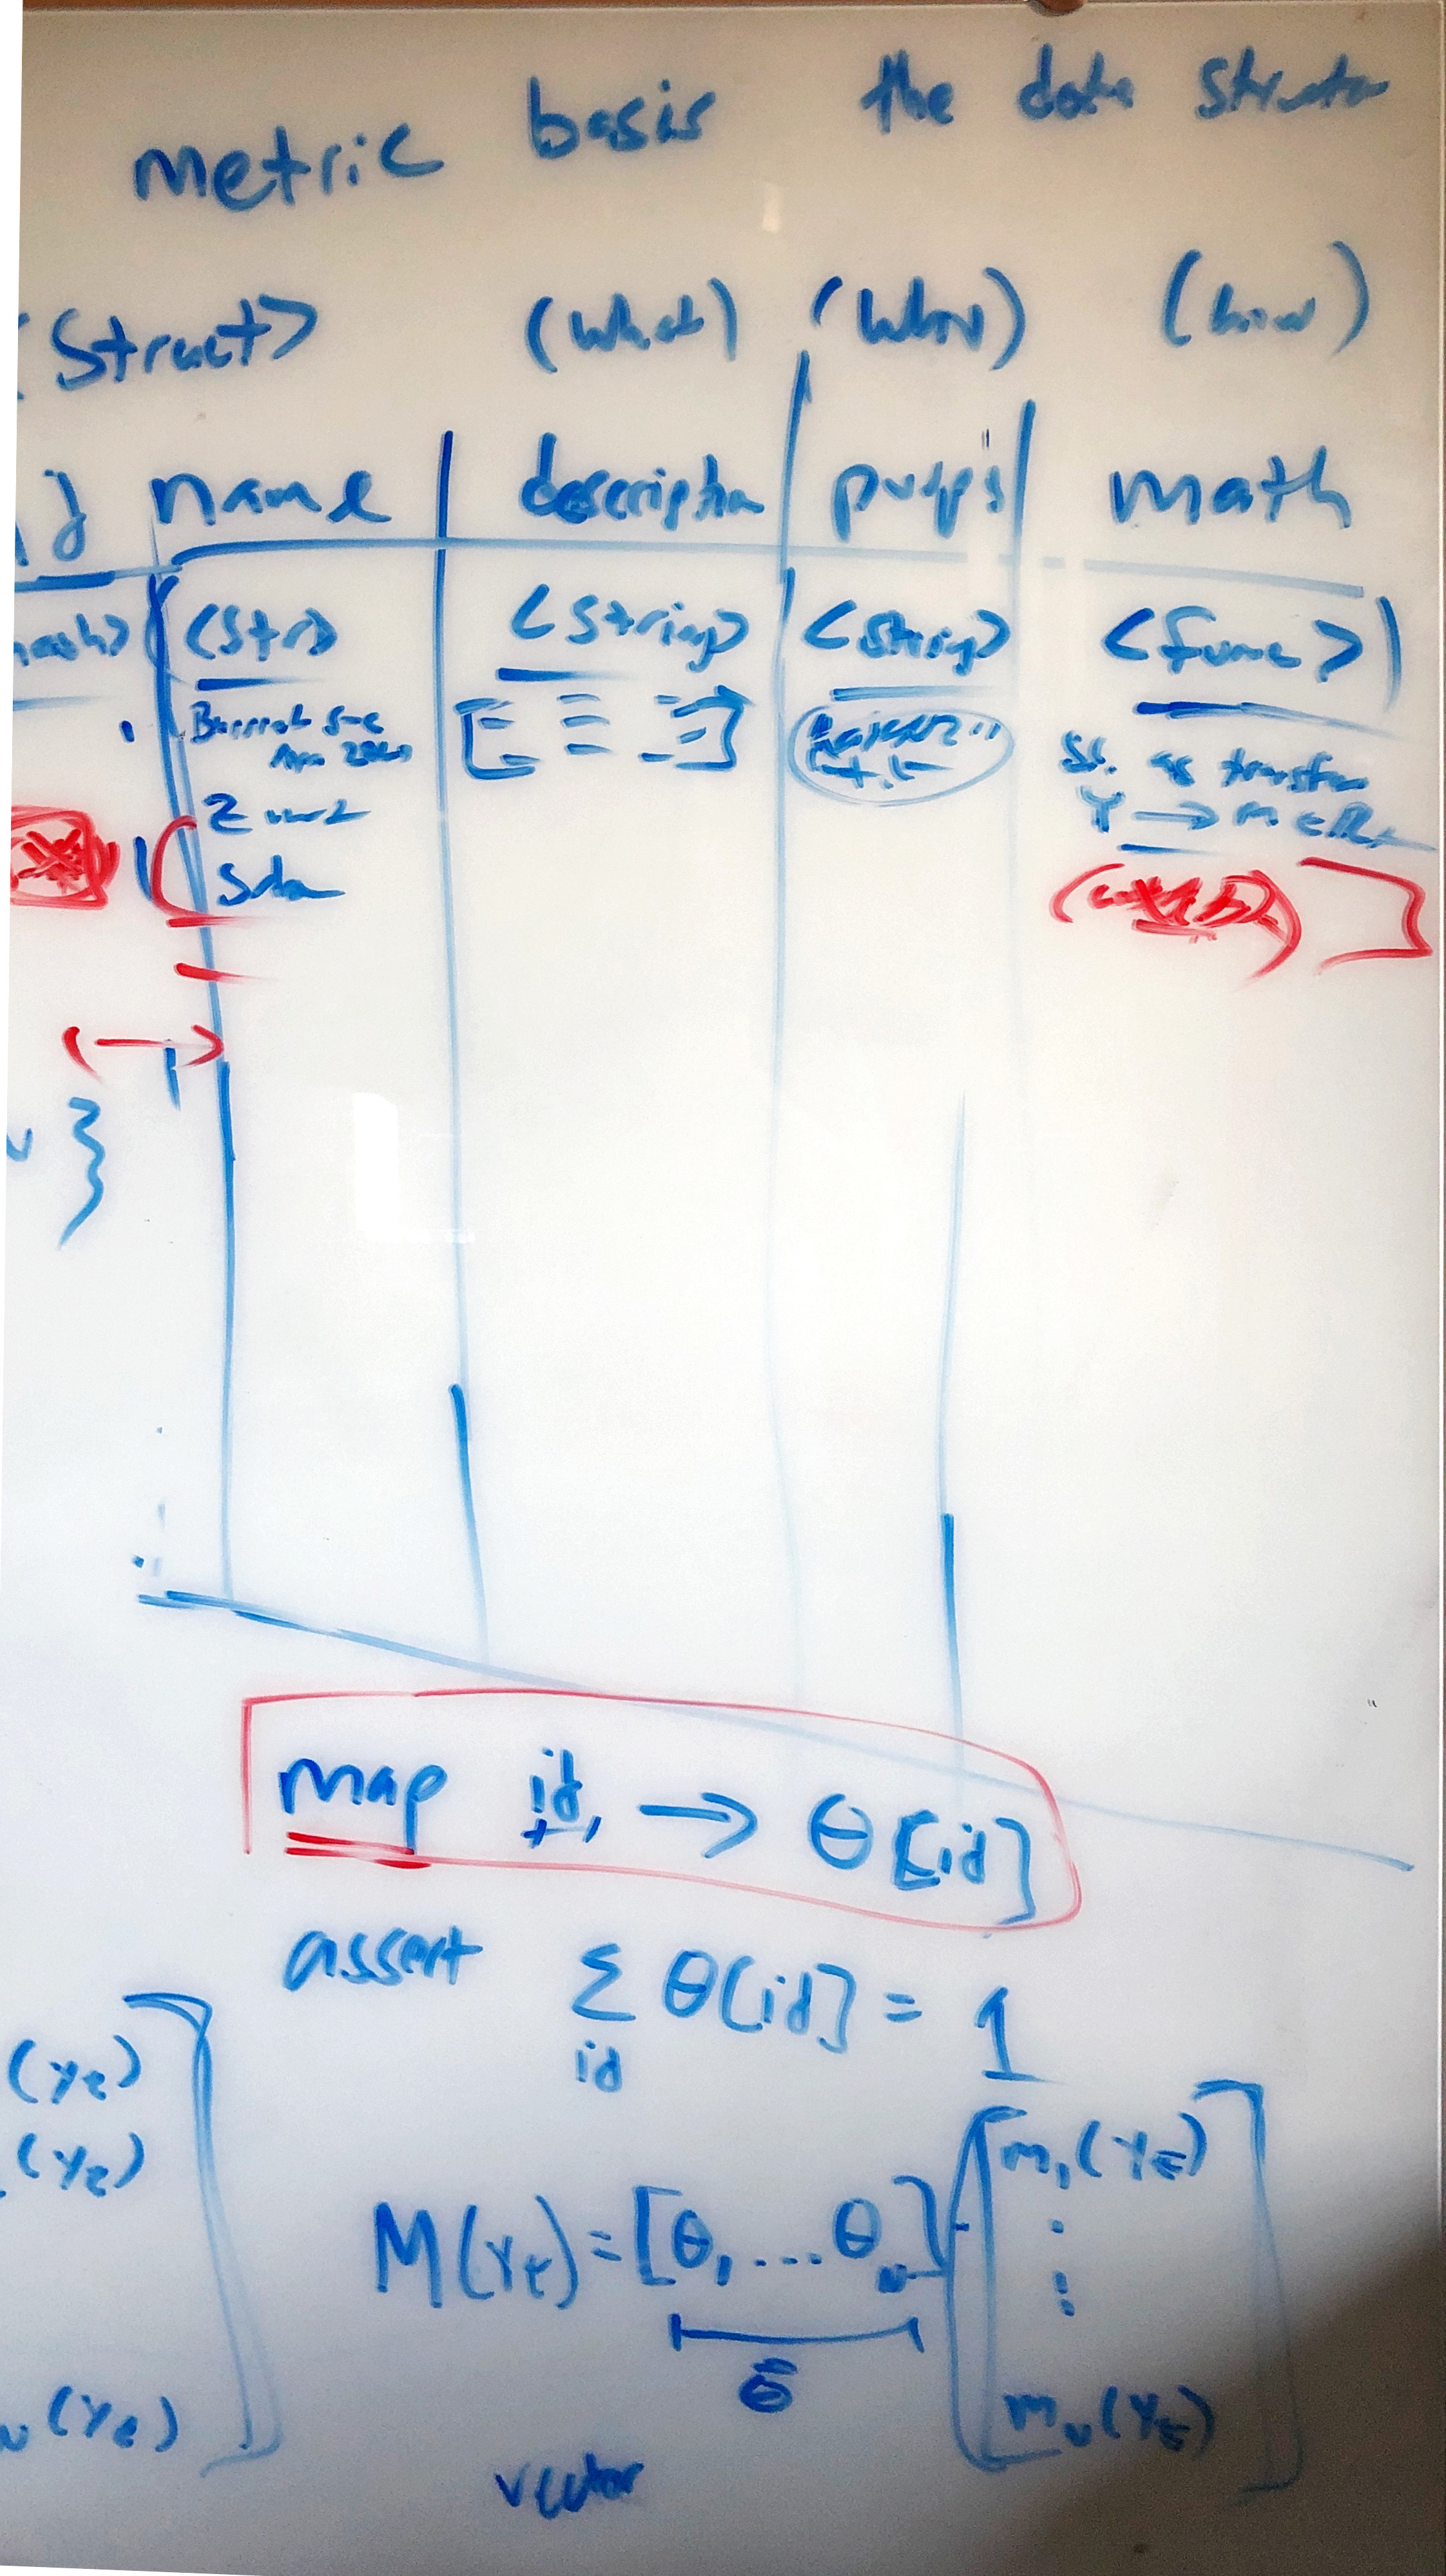 metric basis the data structur
<Struct> (what) (why) (how)
id name description purps math
hash> <str> <string> <string> <func>
as transfrm
Y → m ∈ ℝ
map id → θ[id]
assert Σ θ[id] = 1
id
(Yt)
(Yt)
M(Yt) = [θ1 ... θN] · [m1(Yt)
⋮
mN(Yt)]
θ̄
N(Yt)
vector